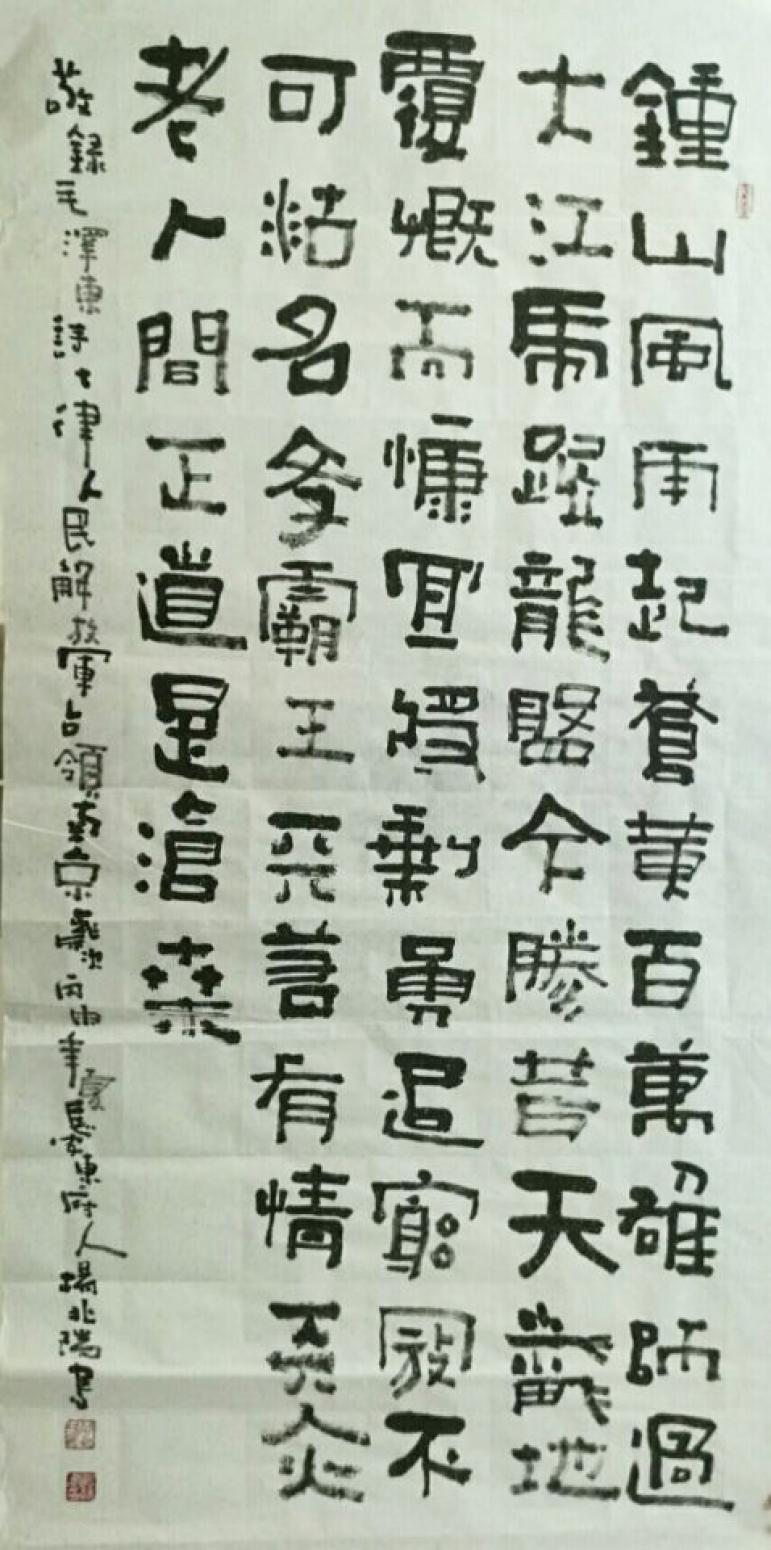 鍾山風雨起蒼黄百萬雄師過
大江虎踞龍盤今勝昔天翻地
覆慨而慷宜將剩勇追窮寇不
可沽名斈霸王天若有情天亦
老人間正道是滄桑
敬録毛澤東詩七律人民解放軍占領南京歲次丙申年夏長安東府人楊兆瑞書